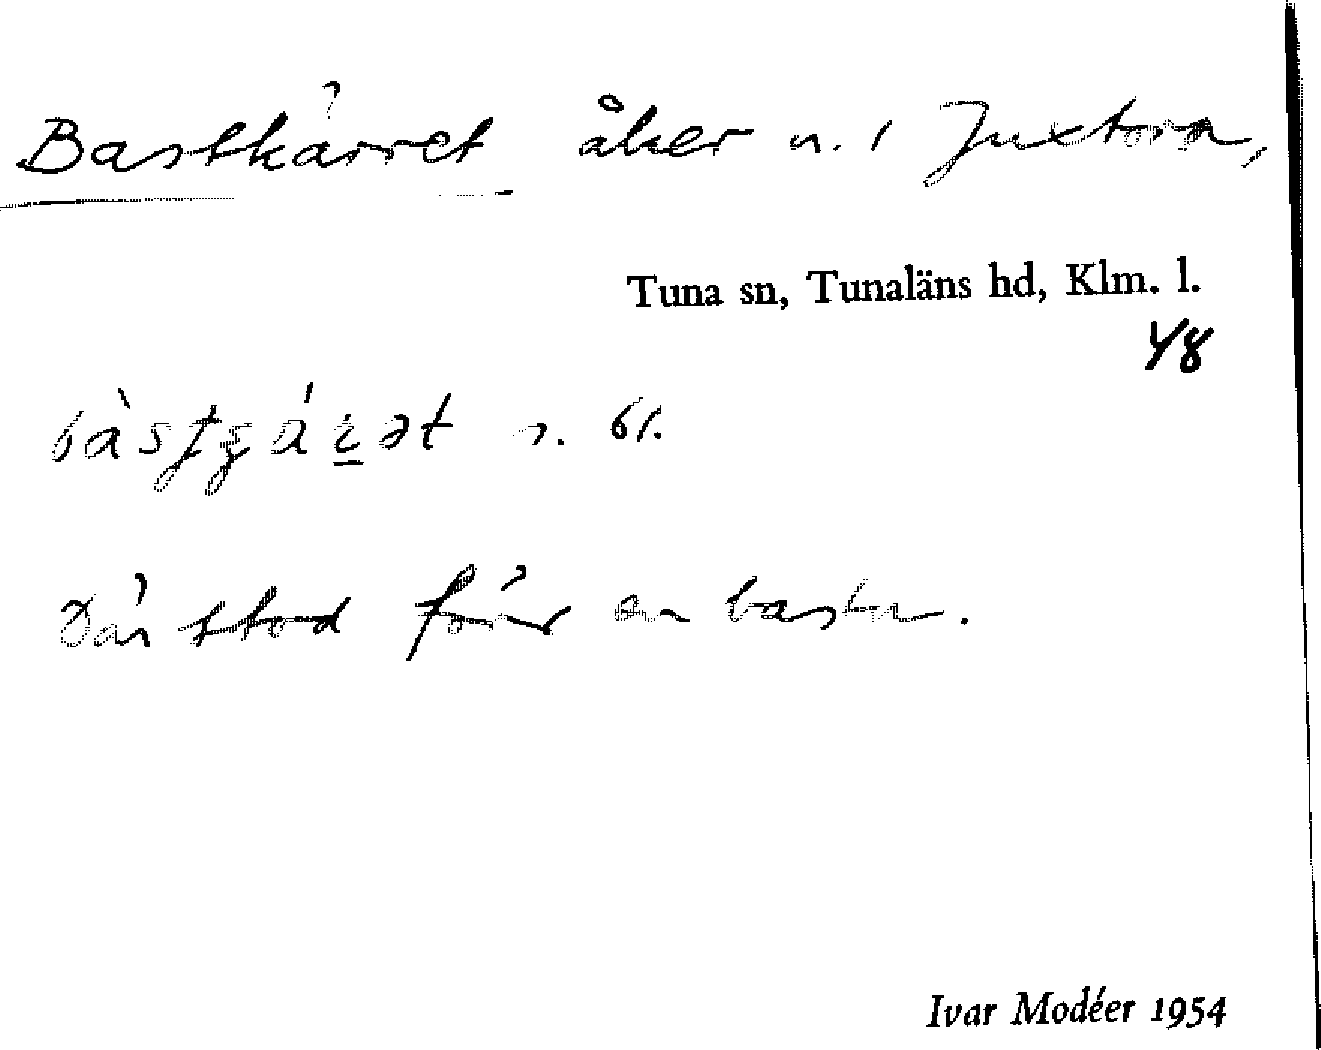 Bastkärret åker n. i Juxtorn,
Tuna sn, Tunaläns hd, Klm. l.
48
n. bl.
Där stod förr en bastu.
Ivar Modéer 1954